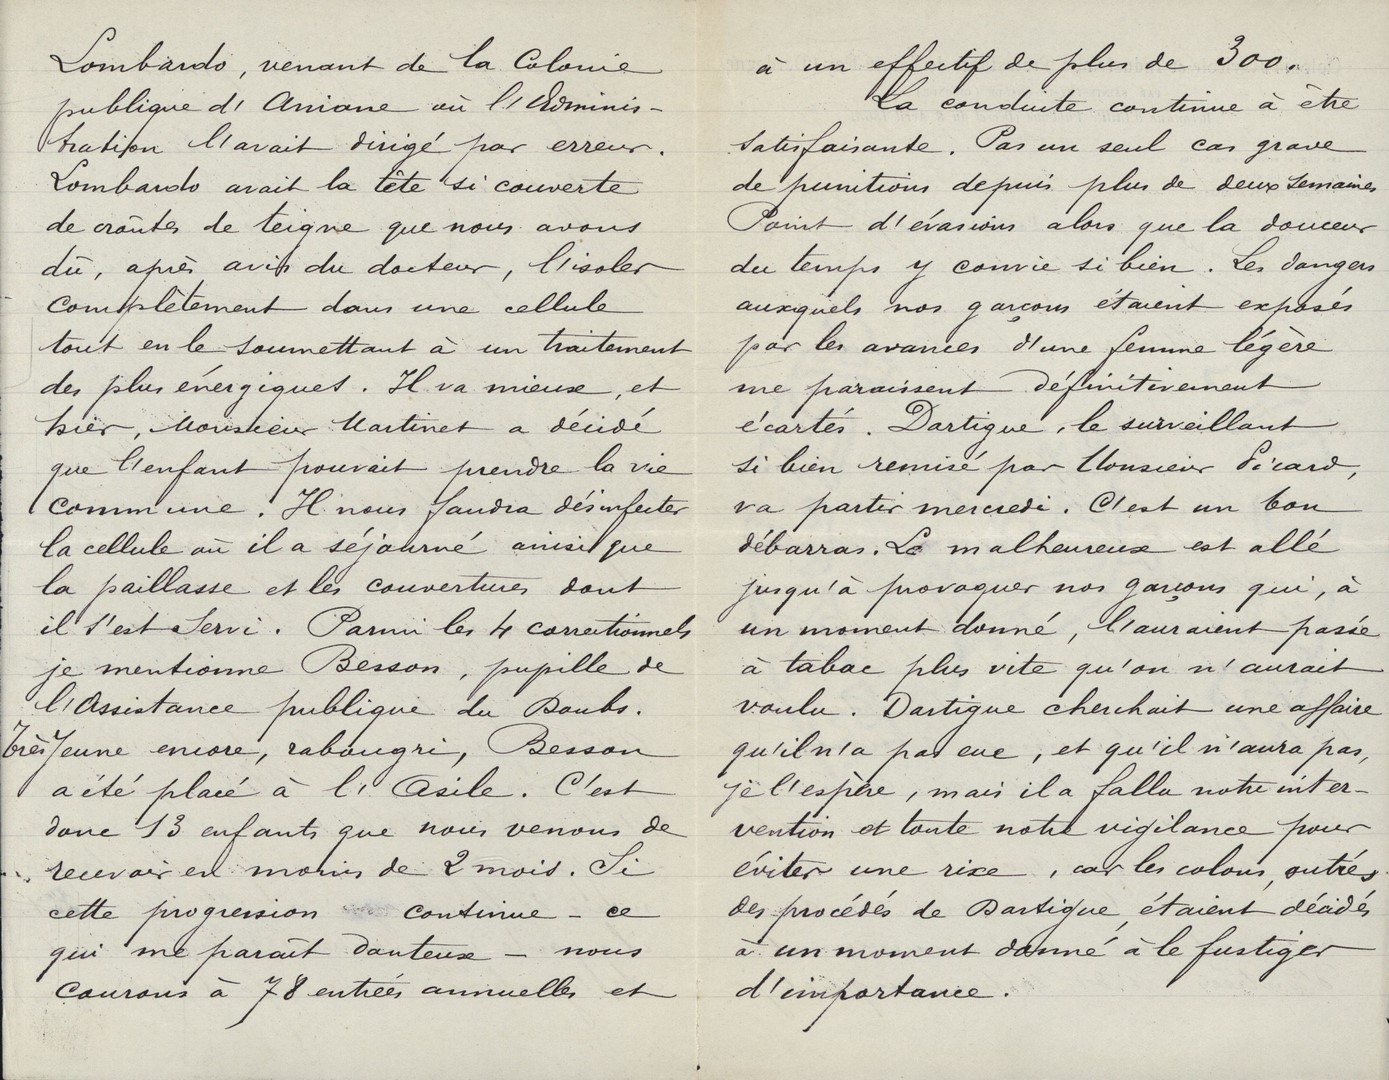 Lombardo, venant de la Colonie
publique d'Aniane où l'Adminis-
tration l'avait dirigé par erreur.
Lombardo avait la tête si couverte
de croûtes de teigne que nous avons
dû, après avis du docteur, l'isoler
complètement dans une cellule
tout en le soumettant à un traitement
des plus énergiques. Il va mieux, et
hier, Monsieur Martinet a décidé
que l'enfant pouvait prendre la vie
commune. Il nous faudra désinfecter
la cellule où il a séjourné ainsi que
la paillasse et les couvertures dont
il s'est servi. Parmi les 4 correctionnels
je mentionne Besson, pupille de
l'Assistance publique du Doubs.
Très jeune encore, rabougri, Besson
a été placé à l'Asile. C'est
donc 13 enfants que nous venons de
recevoir en moins de 2 mois. Si
cette progression continue - ce
qui me paraît douteux - nous
courons à 78 entrées annuelles et
à un effectif de plus de 300.
La conduite continue à être
satisfaisante. Pas un seul cas grave
de punitions depuis plus de deux semaines
Point d'évasions alors que la douceur
du temps y convie si bien. Les dangers
auxquels nos garçons étaient exposés
par les avances d'une femme légère
me paraissent définitivement
écartés. Dartigue, le surveillant
si bien remisé par Monsieur Picard,
va partir mercredi. C'est un bon
débarras. Le malheureux est allé
jusqu'à provoquer nos garçons qui, à
un moment donné, l'auraient passé
à tabac plus vite qu'on n'aurait
voulu. Dartigue cherchait une affaire
qu'il n'a pas eue, et qu'il n'aura pas,
je l'espère, mais il a fallu notre inter-
vention et toute notre vigilance pour
éviter une rixe, car les colons, outrés
des procédés de Dartigue, étaient décidés
à un moment donné à le fustiger
d'importance.